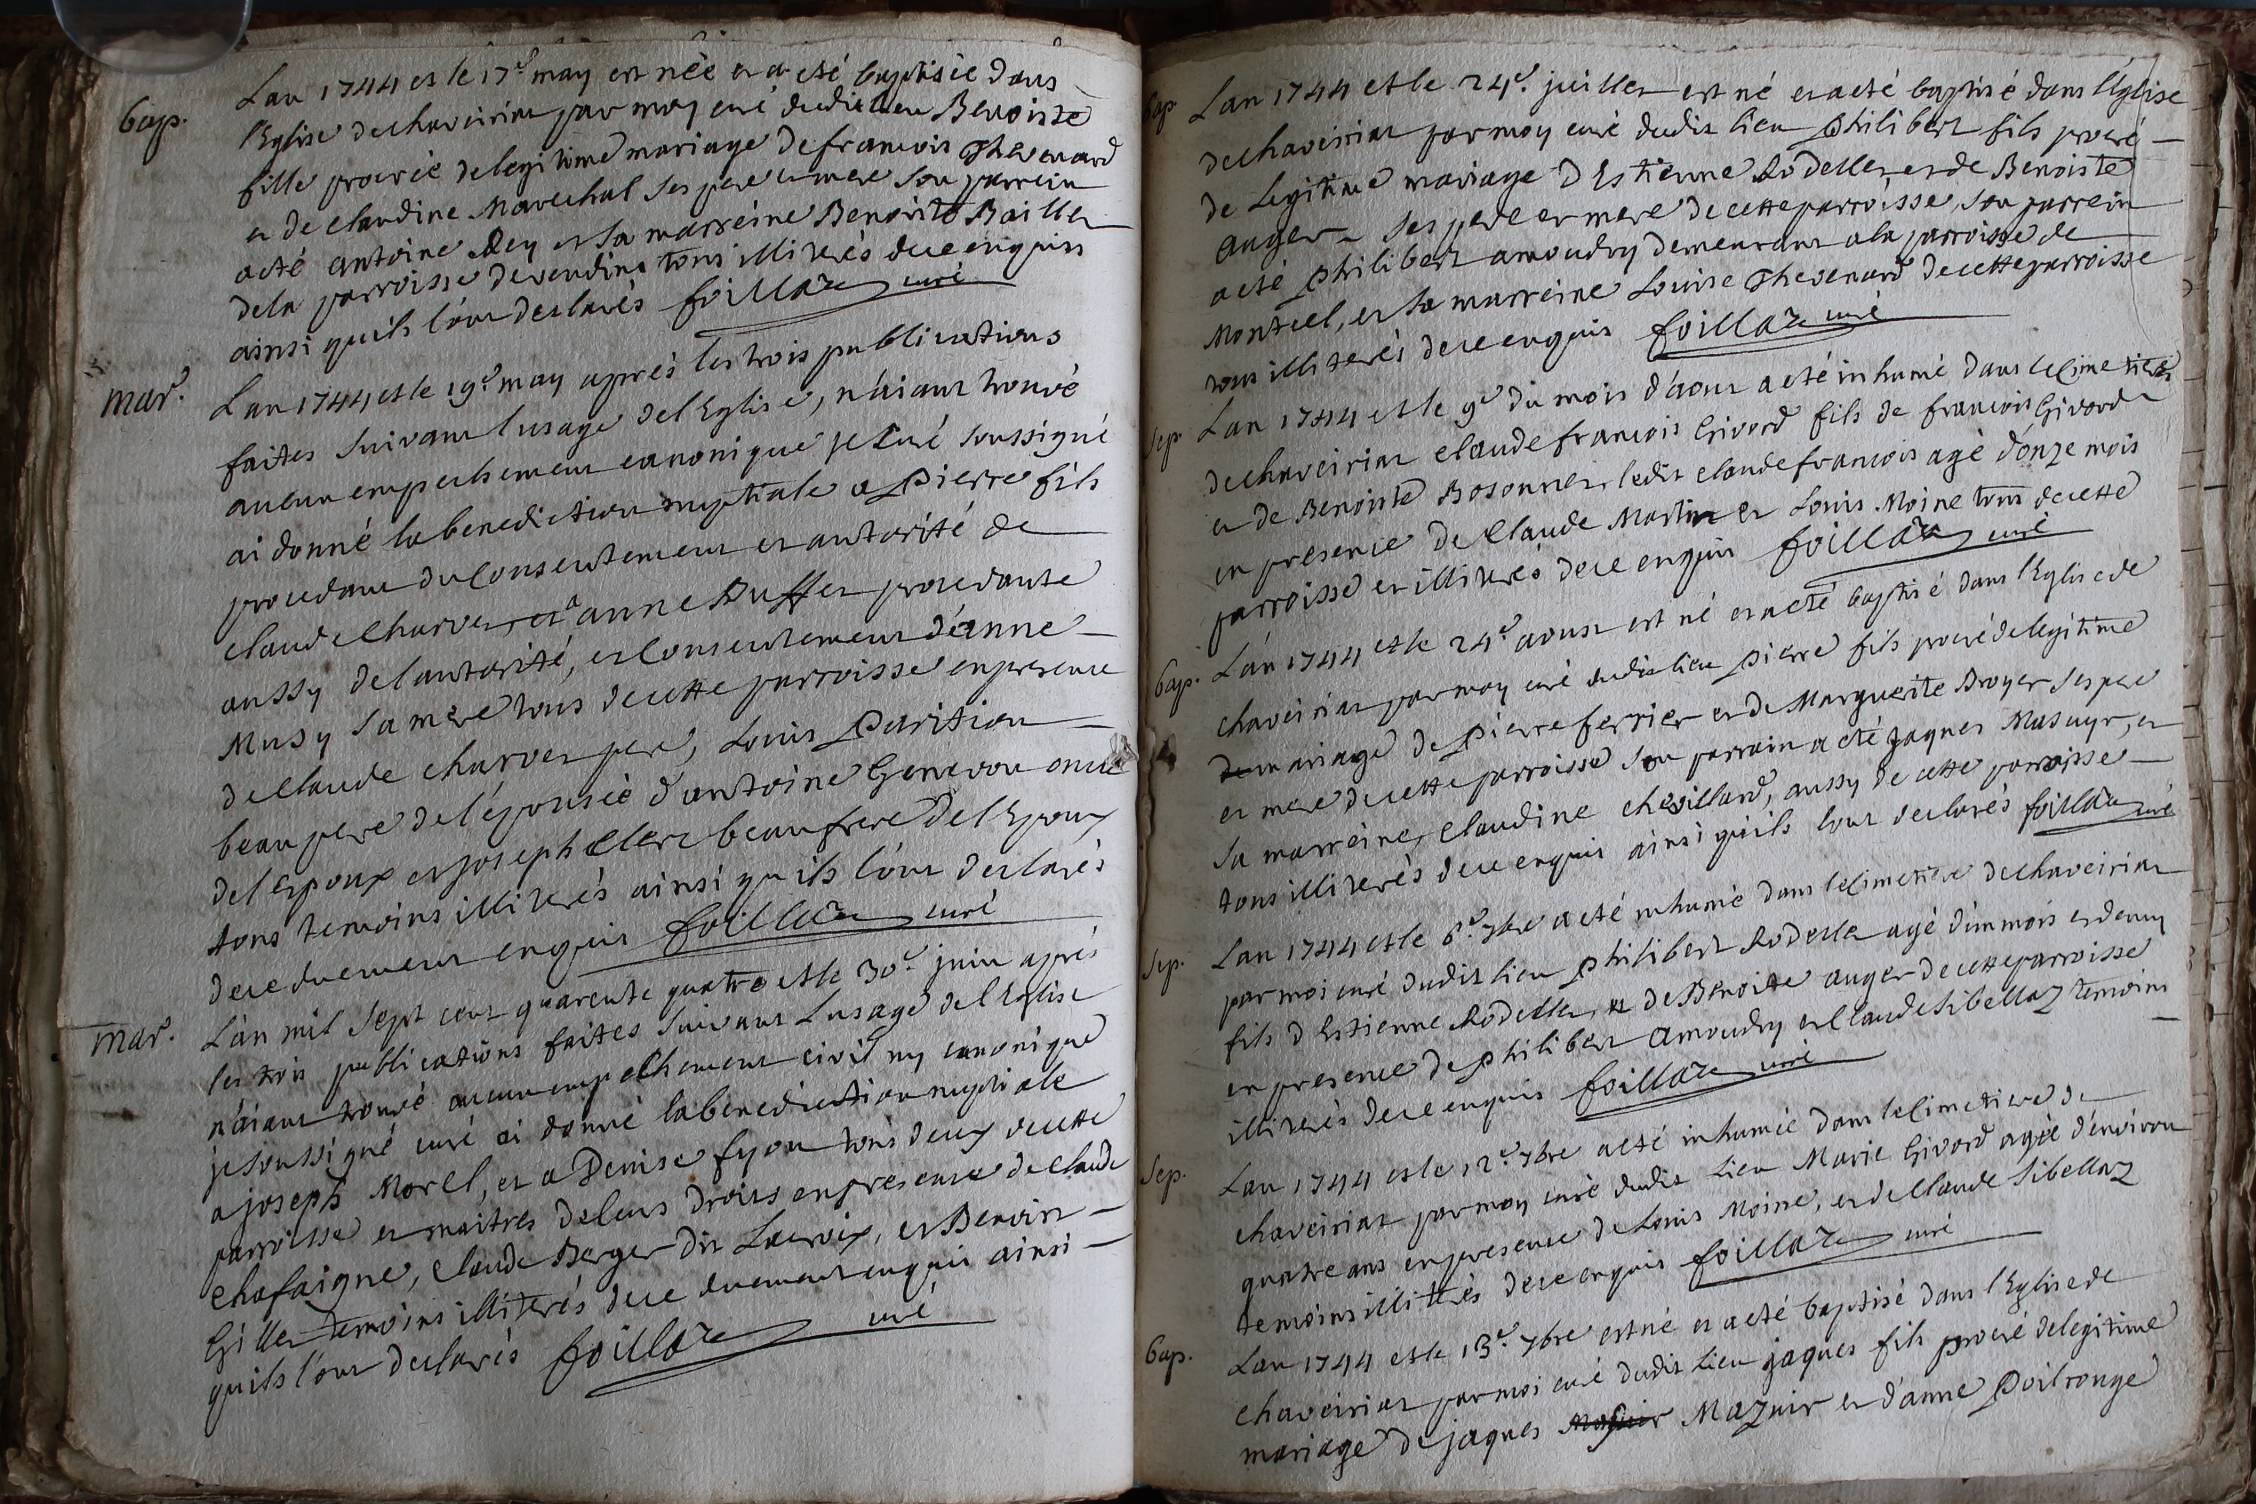 bap.
Lan 1744 et le 17e may est neé et a eté baptiseé dans
l'Eglise de chaveiriat par moy curé dudit lieu Benoiste
fille procreé de legitime mariage de francois Thevenard
et de claudine Marechal ses pere et mere son parrein
a eté antoine Rey et sa marreine Benoiste Baillet
de la parroisse de vendins tous illiterés de ce enquis
ainsi quils l'ont declarés foillaz curé
mar.
Lan 1744 et le 19e may aprés les trois publications
faites suivant l'usage de l'Eglise, n'aiant trouvé
aucun empechement canonique je curé soussigné
ai donné la benediction nuptiale a Pierre fils
procedant du consentement et autorité de
claude Charvet, et a anne Buffet procedante
aussy de l'autorité, et consentement d'anne
Musy sa mere tous de cette parroisse en presence
de claude charvet pere, Louis Parition
beau pere de l'épouseé d'antoine Genevou oncle
de l'Epoux et joseph Clerc beaufrere de l'Epoux
tous temoins illiterés ainsi quils l'ont declarés
de ce duement enquis foillaz curé
mar.
L'an mil sept cent quarente quatre et le 30e juin aprés
les trois publications faites suivant L'usage de l'Eglise
n'aiant trouvé aucun empechement civil ny canonique
je soussigné curé ai donné la benediction nuptiale
a joseph Morel, et a Denise fyon tous deux de cette
parroisse et maitres de leurs droits en presence de claude
Chafaigne, claude Berger dit Lacroix, et Benoist
Gillet temoins illiterés de ce duement enquis ainsi
quils l'ont declarés foillaz curé
bap.
Lan 1744 et le 24e juillet est né et a eté baptisé dans l'Eglise
de chaveiriat par moy curé dudit lieu Philibert fils procré
de Legitime mariage d'Estienne Rodellet et de Benoiste
auger ses pere et mere de cette parroisse, son parrein
a eté Philibert amoudry demeurant a la parroisse de
Montcel, et sa marreine Louise Thevenard de cette parroisse
tous illiterés de ce enquis foillaz curé
sep.
Lan 1744 et le 9e du mois d'aout a eté inhumé dans le cimetiere
de chaveiriat claude francois Givord fils de francois Givord
et de Benoiste Bosonnet ledit claude francois agé d'onze mois
en presence de Claude Martin et Louis Moine tous de cette
parroisse et illiterés de ce enquis foillaz curé
bap.
L'an 1744 et le 24e aoust est né et a eté baptisé dans l'Eglise de
chaveiriat par moy curé dudit lieu Pierre fils procré de legitime
mariage de Pierre ferrier et de Marguerite Broyer ses pere
et mere de cette parroisse son parrain a eté jaques Masuyr, et
sa marreine, claudine chevillard, aussy de cette parroisse
tous illiterés de ce enquis ainsi quils l'ont declarés foillaz curé
sep.
Lan 1744 et le 6e 7bre a eté inhumé dans le cimetiere de chaveiriat
par moi curé dudit lieu Philibert Rodellet agé d'un mois et demy
fils d'Estienne Rodellet, et de Benoite auger de cette parroisse
en presence de Philibert amoudry et Claude Sibellaz temoins
illiterés de ce enquis foillaz curé
Sep.
Lan 1744 et le 12e 7bre a eté inhumée dans le cimetiere de
chaveiriat par moy curé dudit Lieu Marie Givord ageè d'environ
quatre ans en presence de Louis Moine, et de Claude Sibellaz
temoins illiterés de ce enquis foillaz curé
bap.
Lan 1744 et le 13e 7bre est né et a eté baptisé dans l'Eglise de
chaveiriat par moi curé dudit Lieu jaques fils procré de legitime
mariage de jaques Mazuir et d'anne Poilrouge